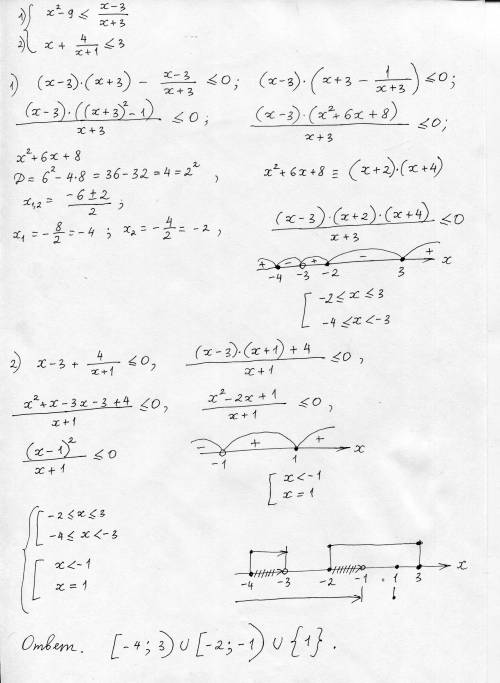 1) { x² - 9 ≤ (x-3)/(x+3)
2) { x + 4/(x+1) ≤ 3
1) (x-3)·(x+3) - (x-3)/(x+3) ≤ 0; (x-3)·(x+3 - 1/(x+3)) ≤ 0;
((x-3)·((x+3)² - 1))/(x+3) ≤ 0; ((x-3)·(x²+6x+8))/(x+3) ≤ 0;
x²+6x+8
D = 6² - 4·8 = 36 - 32 = 4 = 2², x²+6x+8 ≡ (x+2)·(x+4)
x₁,₂ = (-6±2)/2; ((x-3)·(x+2)·(x+4))/(x+3) ≤ 0
x₁ = -8/2 = -4; x₂ = -4/2 = -2,
+ - + - + x
-4 -3 -2 3
[ -2 ≤ x ≤ 3
-4 ≤ x < -3
2) x - 3 + 4/(x+1) ≤ 0, ((x-3)·(x+1)+4)/(x+1) ≤ 0,
(x²+x-3x-3+4)/(x+1) ≤ 0, (x²-2x+1)/(x+1) ≤ 0,
(x-1)²/(x+1) ≤ 0 - + + x
-1 1
[ x < -1
x = 1
{ [ -2 ≤ x ≤ 3
-4 ≤ x < -3
[ x < -1
x = 1
-4 -3 -2 -1 1 3 x
Ответ. [-4; 3) ∪ [-2; -1) ∪ {1}.